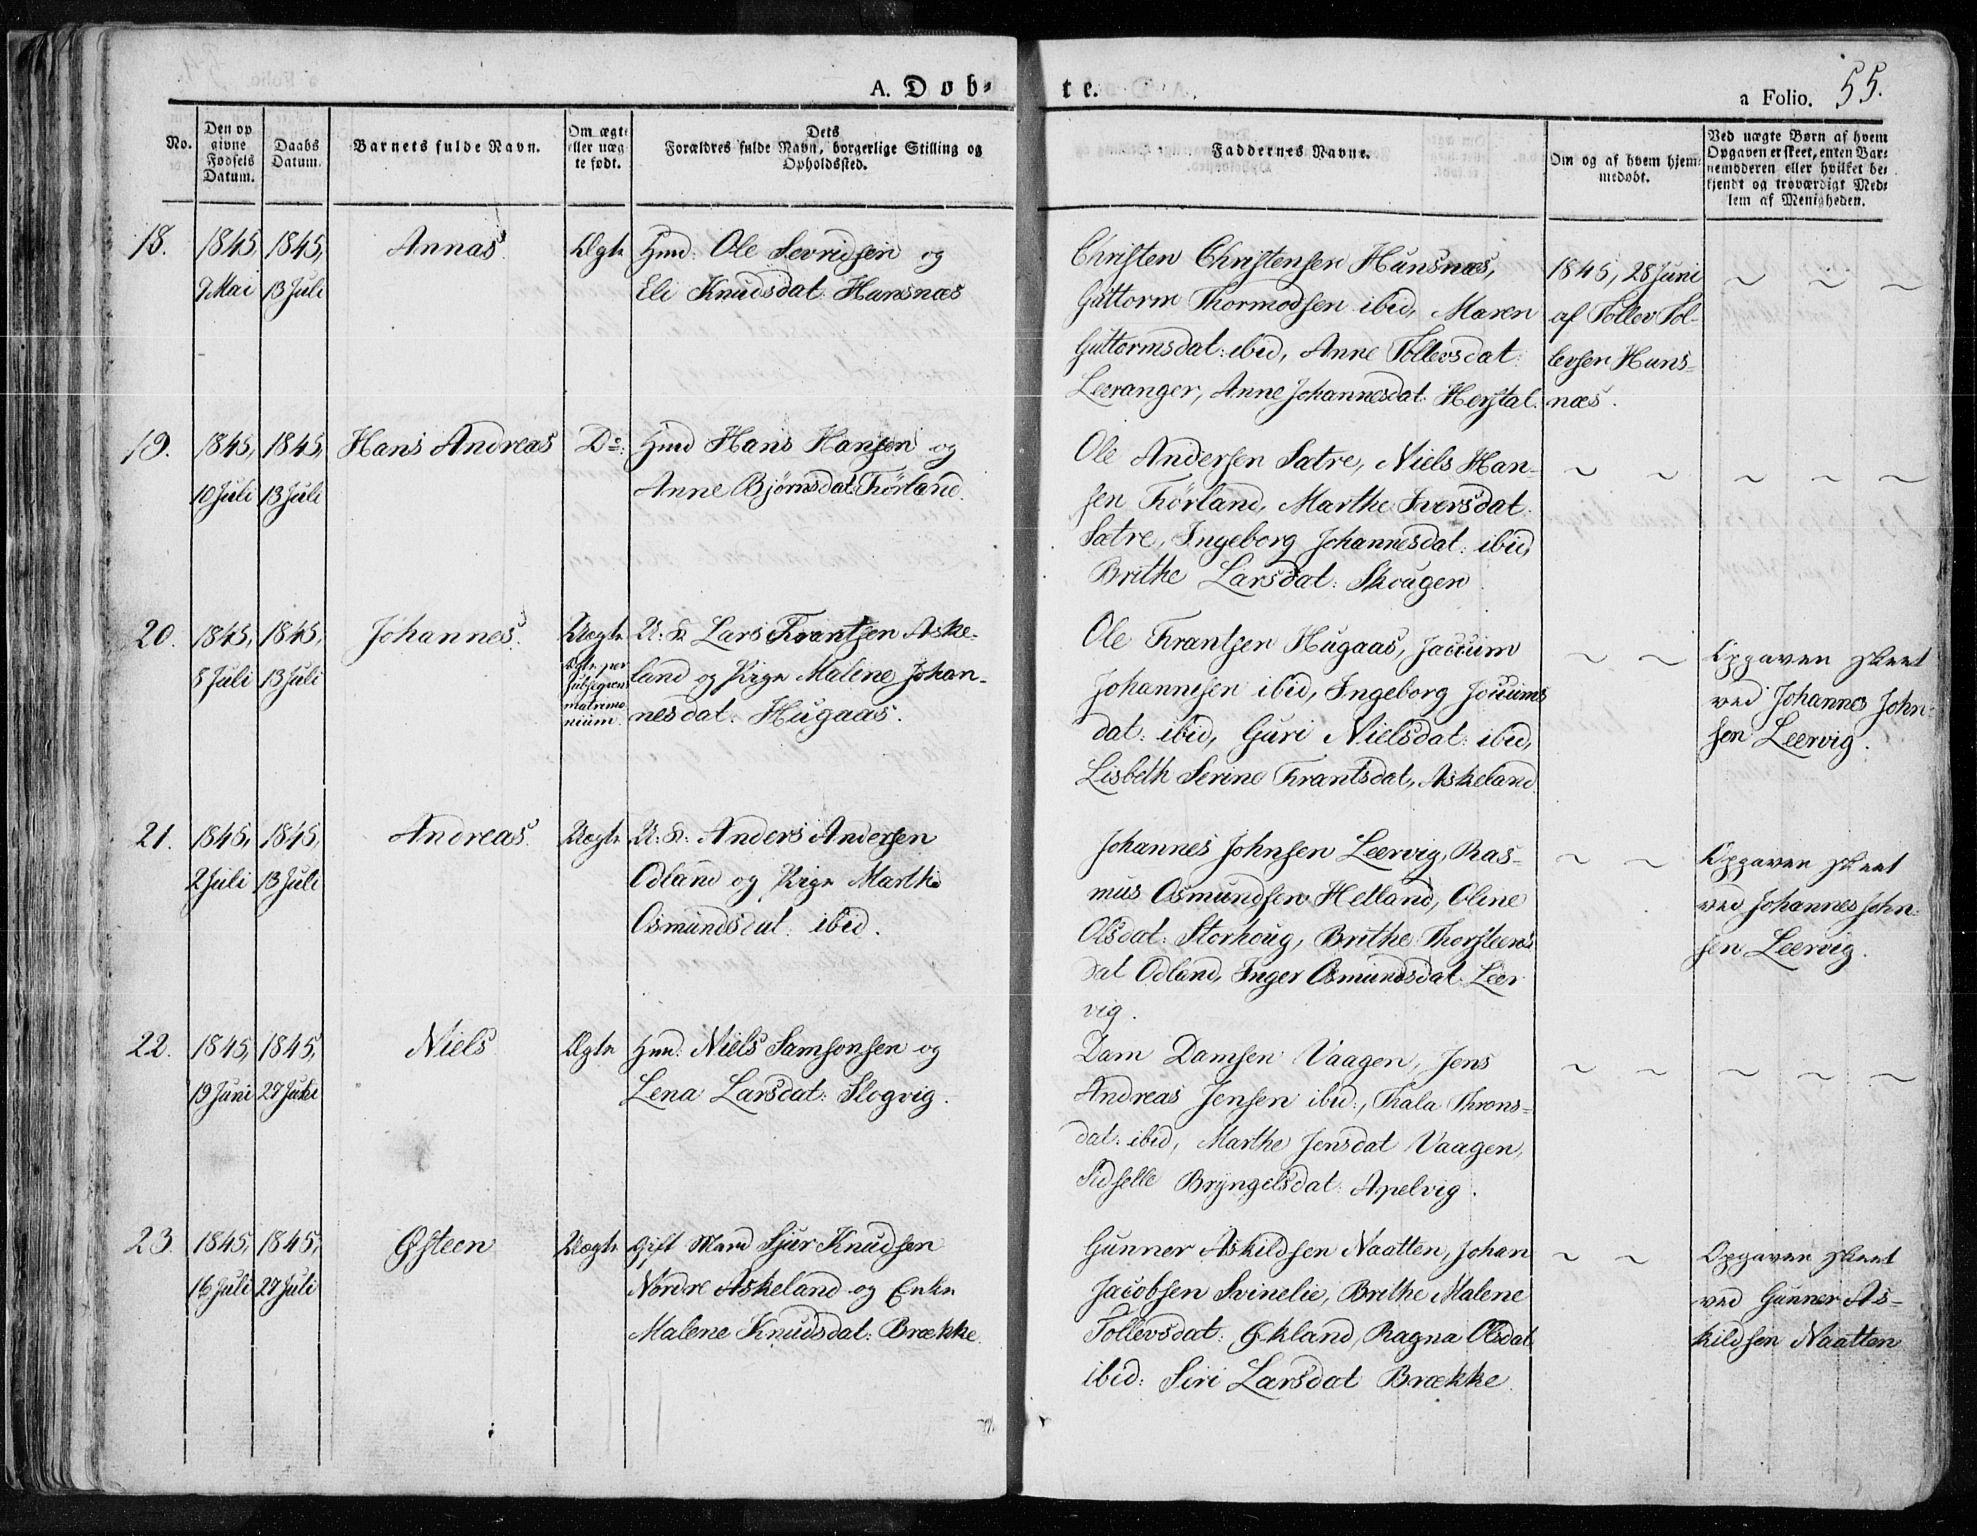 A. Døb-
te.
a Folio. 55.
No.
Den op
givne
Fødsels
Datum.
Daabs
Datum.
Barnets fulde Navn.
Om ægte
eller uæg
te født.
Dets
Forældres fulde Navn, borgerlige Stilling og
Opholdssted.
Faddernes Navne.
Om og af hvem hjem-
medøbt.
Ved uægte Børn af hvem
Opgaven er skeet, enten Bar-
nemoderen eller hvilket be-
kjendt og troværdigt Med-
lem af Menigheden.
18.
1845,
7 Mai
1845,
13 Juli
Annas
Ægte
Hmd: Ole Sevridsen og
Eli Knudsdat: Hunsnæs
Christen Christensen Hunsnæs,
Guttorm Thormodsen ibid, Maren
Guttormsdat: ibid, Anne Tollevsdat:
Leeranger, Anne Johannesdat: Herstal.
1845, 28 Juni
af Tollev Tol-
levsen Huns-
næs.
19.
1845,
10 Juli
1845,
13 Juli
Hans Andreas
Do:
Hmd Hans Hansen og
Anne Bjørnsdat: Førland.
Ole Andersen Sætre, Niels Han-
sen Førland, Marthe Iversdat:
Sætre, Ingeborg Johannesdat: ibid,
Brithe Larsdat: Skougen.
20.
1845,
5 Juli
1845,
13 Juli
Johannes.
Uægte
Ægte per
subseqvens
matrimo
nium
U: K: Lars Frantsen Aske-
land og Pige Malene Johan-
nesdat: Hugaas.
Ole Frantsen Hugaas, Jocum
Johannesen ibid, Ingeborg Jocums
dat: ibid, Guri Nielsdat: ibid,
Lisbeth Serine Frantsdat, Askeland
Opgaven skeet
ved Johannes John-
sen Leervig.
21.
1845,
2 Juli
1845,
13 Juli
Andreas.
Uægte
U: K: Anders Andersen
Odland og Pige Marthe
Osmundsdat: ibid.
Johannes Johnsen Leervig, Ras-
mus Osmundsen Hetland, Oline
Olsdat: Storhoug, Brithe Thorsteens
dat Odland, Inger Osmundsdat: Leer
vig.
Opgaven skeet
ved Johannes John-
sen Leervig.
22.
1845,
19 Juni
1845,
27 Juli
Niels
Ægte
Hmd: Niels Samsonsen og
Lena Larsdat: Slogvig.
Dam Damsen Vaagen, Jens
Andreas Jensen ibid:, Thala Throns-
dat: ibid, Marthe Jensdat Vaagen,
Sidselle Bryngelsdat: Apelvig.
23.
1845,
16 Juli
1845,
27 Juli
Østeen
Uægte
Gift Mand Sjur Knudsen
Nordre Askeland og Enke
Malene Knudsdat: Brække.
Gunner Askildsen Naatten, Johan
Jacobsen Svinelie, Brithe Malene
Tollevsdat: Økland, Ragna Olsdat
ibid: Siri Larsdat Brække
Opgaven skeet
ved Gunner As-
kildsen Naatten